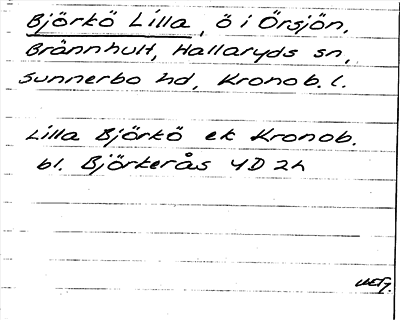 Björkö Lilla, ö i Örsjön,
Brännhult, Hallaryds sn,
Sunnerbo hd, Kronob. l.
Lilla Björkö ek Kronob.
bl. Björkerås 4D 2h